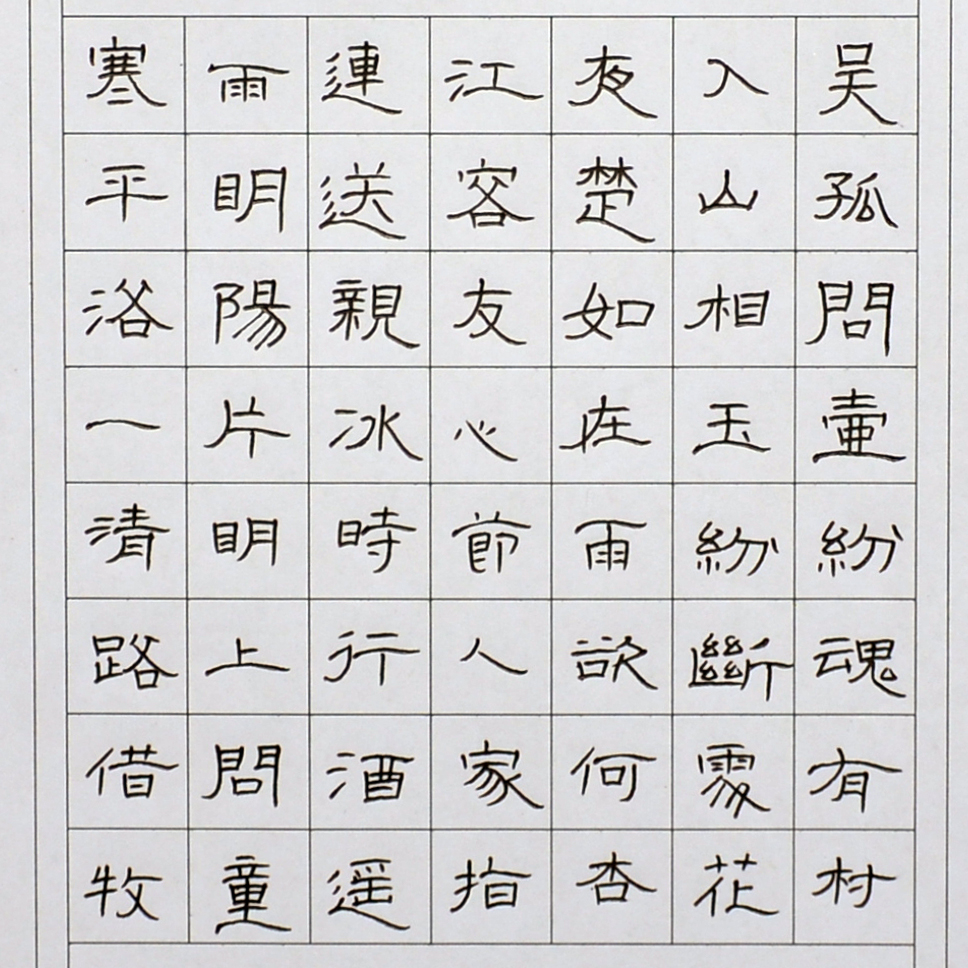 寒雨連江夜入吴
平明送客楚山孤
洛陽親友如相問
一片冰心在玉壷
清明時節雨紛紛
路上行人欲斷魂
借問酒家何處有
牧童遥指杏花村